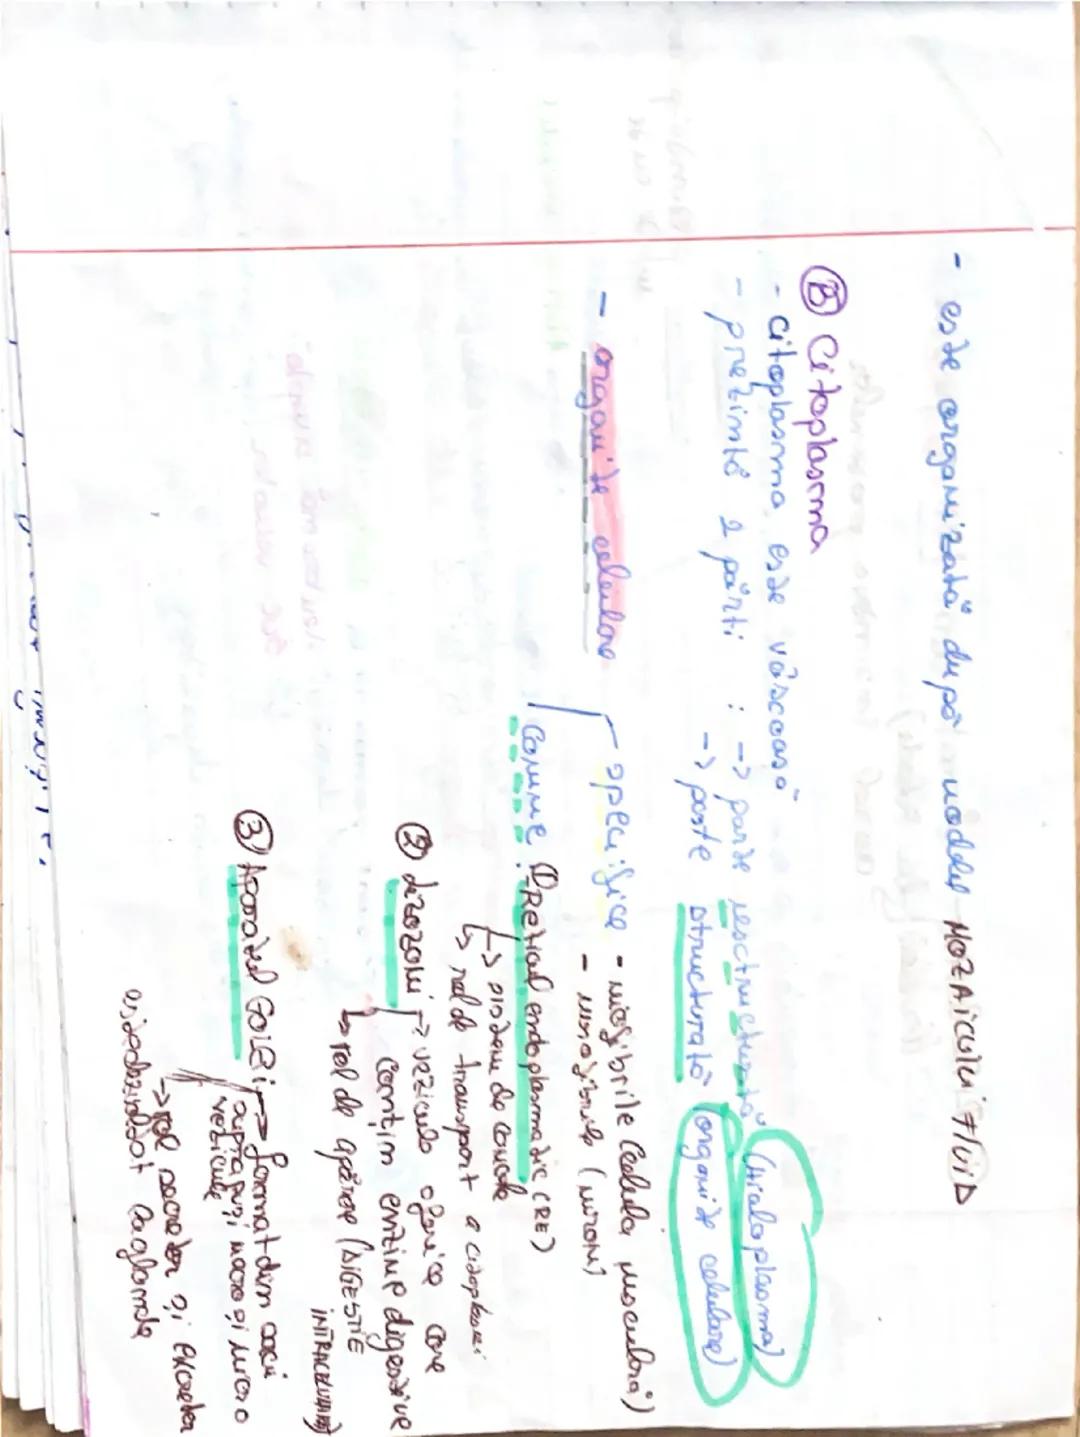 - este organizată după modelul MOZAICULUI FLUID
Ⓑ Citoplasma
- citoplasma este vâscoasă
- prezintă 2 părți : -> parte nestructurată (hialoplasma)
-> parte structurată (organite celulare)
- organite celulare
specifice - miofibrile (celula musculară)
- neurofibrile (neuron)
comune : ① Reticul endoplasmatic (RE)
-> sistem de canale
↳ rol de transport a citoplasmei
② Lizozomi -> vezicule sferice care
conțin enzime digestive
↳ rol de apărare (DIGESTIE
INTRACELULARĂ)
③ Aparatul GOLGI -> format din saci
suprapuși macro și micro
vezicule
-> rol secretor și excretor
este dezvoltat la glande